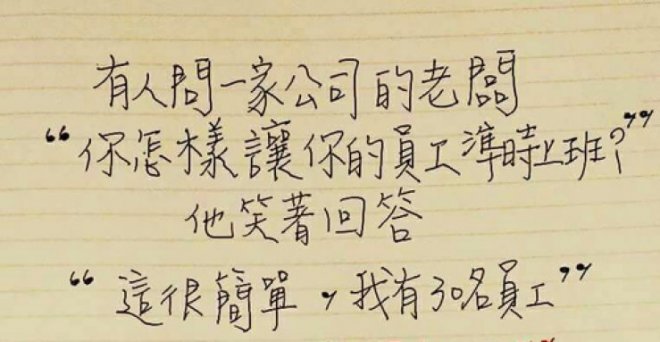 有人問一家公司的老闆
“你怎樣讓你的員工準時上班?”
他笑著回答
“這很簡單,我有30名員工”